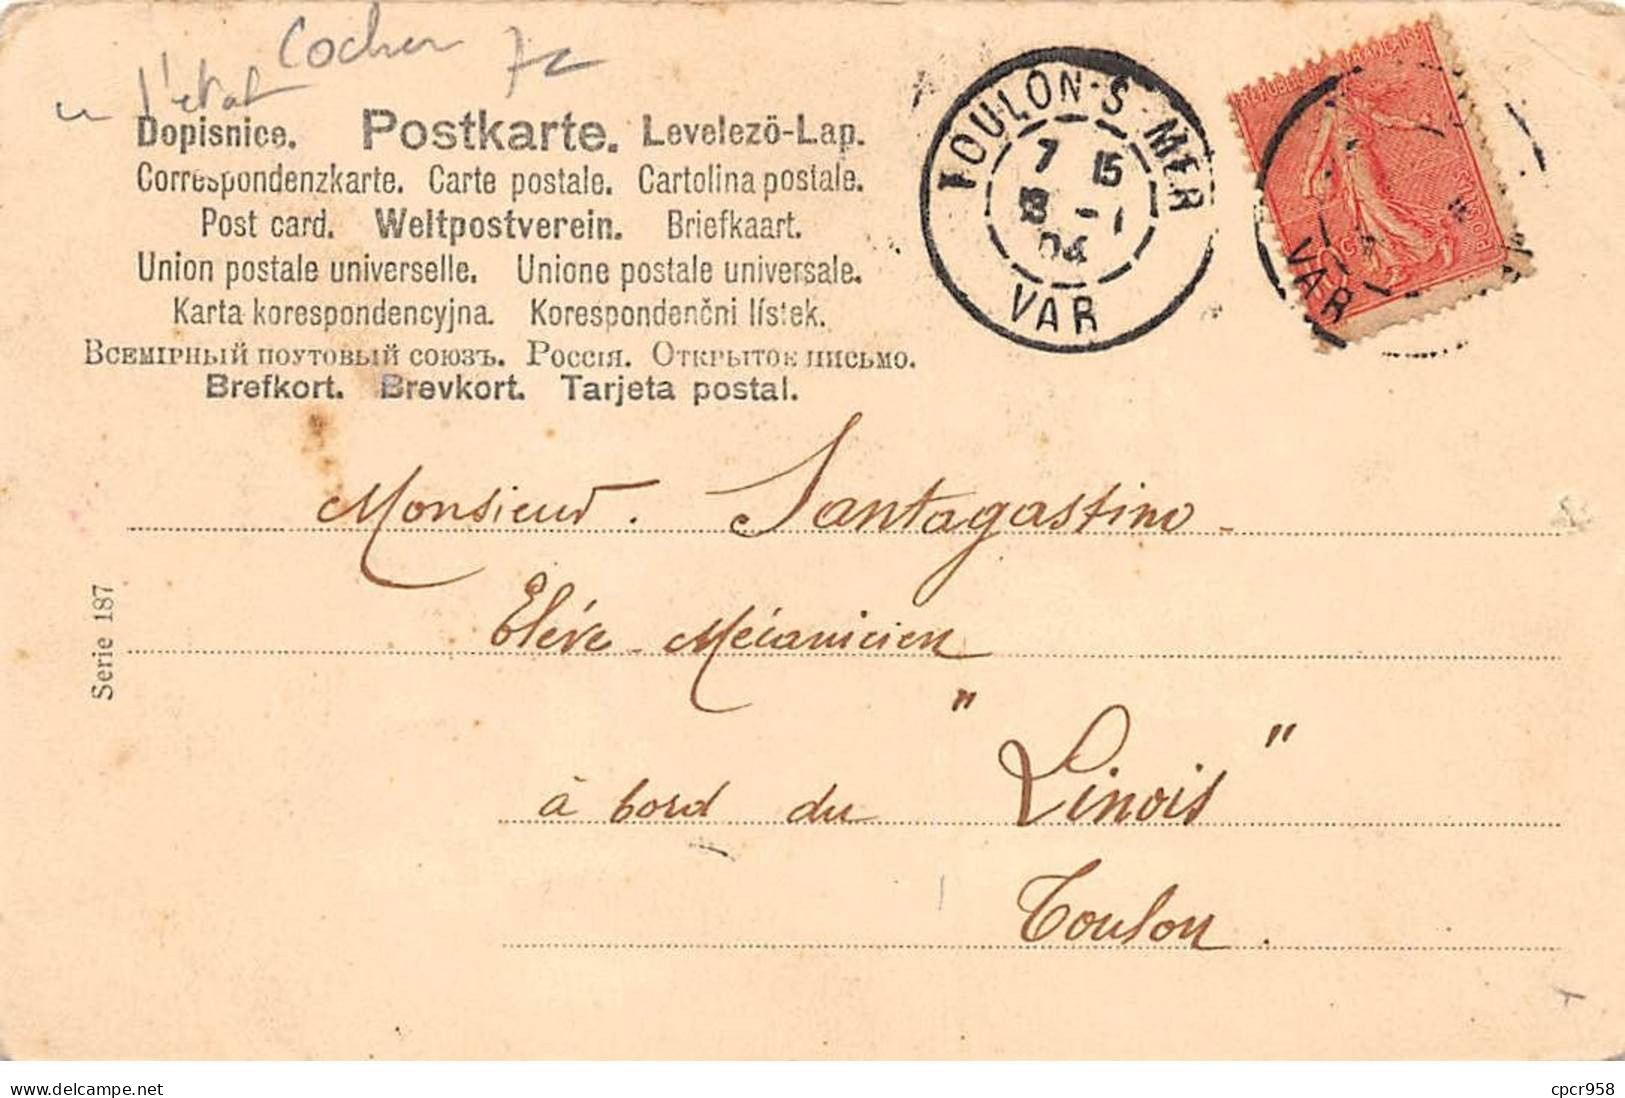 Cocher
l'état
Dopisnice. Postkarte. Levelező-Lap.
Correspondenzkarte. Carte postale. Cartolina postale.
Post card. Weltpostverein. Briefkaart.
Union postale universelle. Unione postale universale.
Karta korespondencyjna. Korespondenčni lístek.
Всемірный поутовый союзъ. Россія. Открытое письмо.
Brefkort. Brevkort. Tarjeta postal.
TOULON-S-MER
7 15
-1
04
VAR
VAR
Monsieur. Santagastino
Elève Mécanicien
à bord du "Linois"
Toulon.
Serie 187
www.delcampe.net
cpcr958